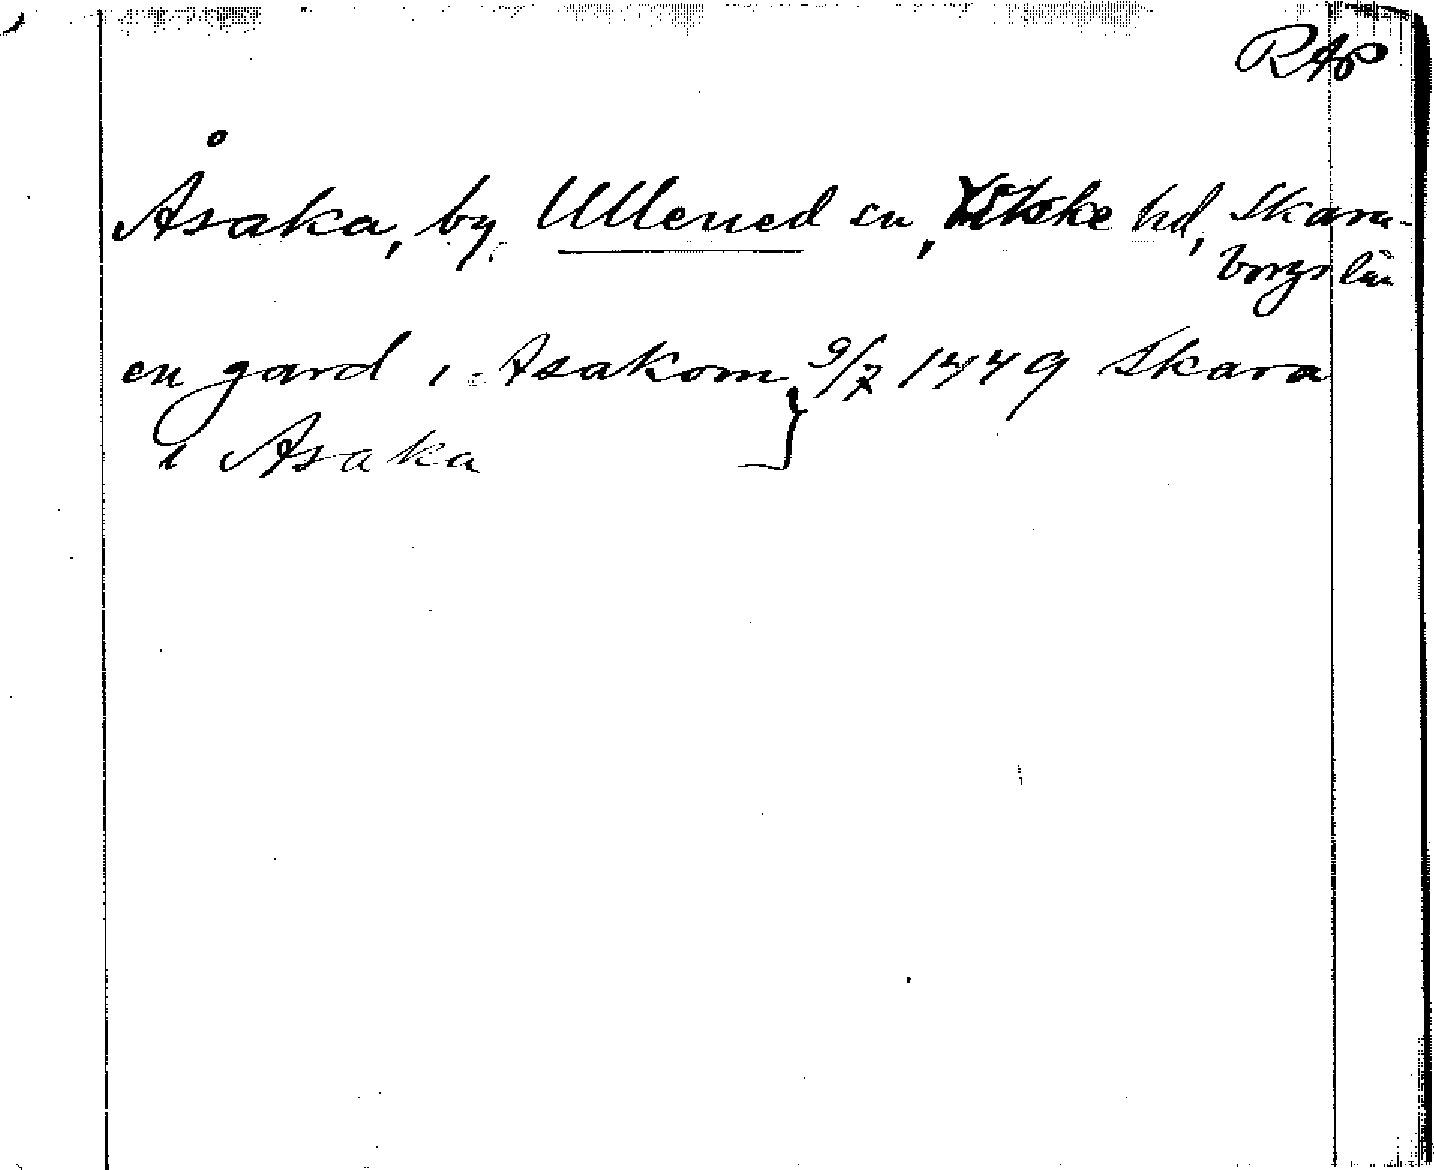 RAP
Åsaka, by, Ullened sn, hd, Skara-
borgs län
en gard i Asakom 9/7 1449 Skara
i Asaka